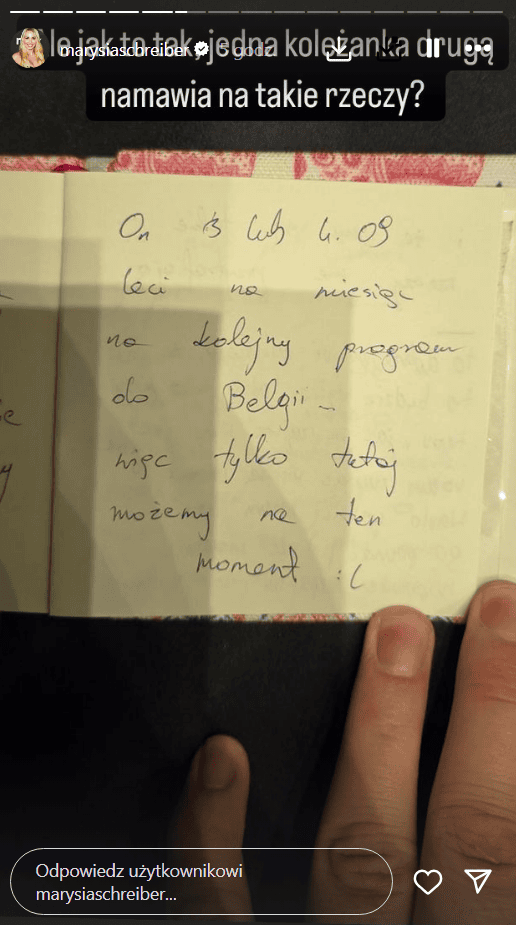 Ale jak to tak, jedna koleżanka drugą
marysiaschreiber 5 godz.
namawia na takie rzeczy?
On 3 lub 4. 09
leci na miesiąc
na kolejny program
do Belgii...
więc tylko tutaj
możemy na ten
moment :(
Odpowiedz użytkownikowi
marysiaschreiber...